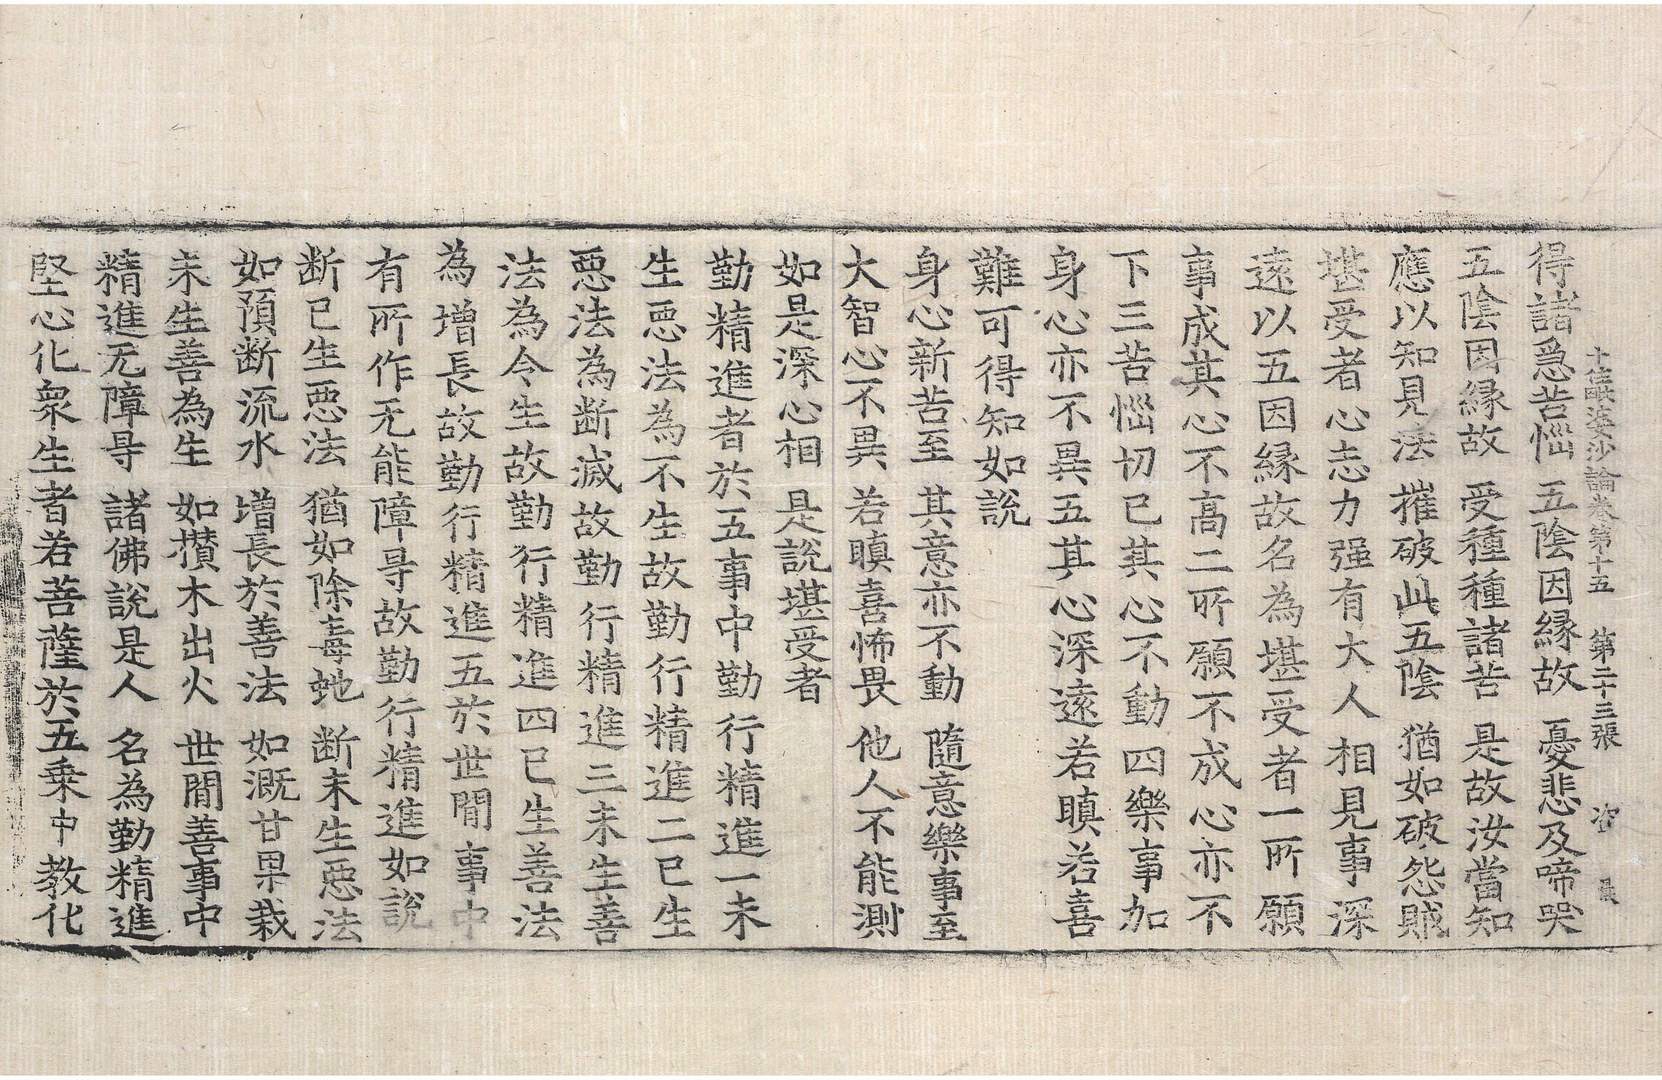 十住毗婆沙論卷第十五 第二十三張 資
得諸急苦惱 五陰因縁故 憂悲及啼哭
五陰因縁故 受種種諸苦 是故汝當知
應以知見法 摧破此五陰 猶如破怨賊
堪受者心志力强有大人相見事深
遠以五因縁故名為堪受者一所願
事成其心不高二所願不成心亦不
下三苦惱切已其心不動四樂事加
身心亦不異五其心深遠若瞋若喜
難可得知如說
身心新苦至 其意亦不動 隨意樂事至
大智心不異 若瞋喜怖畏 他人不能測
如是深心相 是說堪受者
勤精進者於五事中勤行精進一未
生惡法為不生故勤行精進二已生
惡法為断滅故勤行精進三未生善
法為令生故勤行精進四已生善法
為增長故勤行精進五於世間事中
有所作无能障㝵故勤行精進如說
断已生惡法 猶如除毒虵 断未生惡法
如預断流水 增長於善法 如溉甘果栽
未生善為生 如攅木出火 世間善事中
精進无障㝵 諸佛說是人 名為勤精進
堅心化衆生者若菩薩於五乗中教化